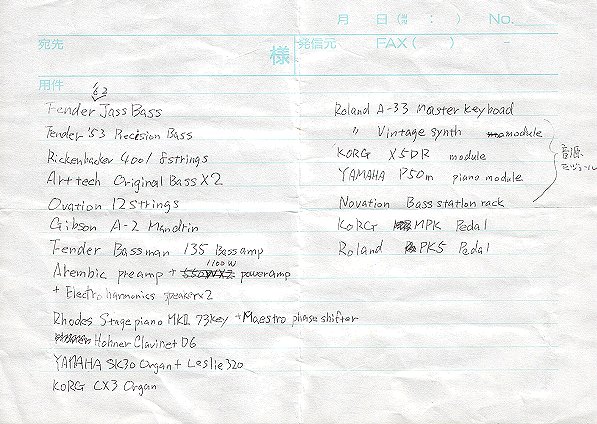 月 日(時間 : ) No.
宛先
様
発信元 FAX( ) -
用件
'62
Fender Jass Bass
Fender '53 Precision Bass
Rickenbacker 4001 8strings
Arttech Original Bass X 2
Ovation 12strings
Gibson A-2 Mandrin
Fender Bassman 135 Bass amp
1100W
Alembic preamp + poweramp
+ Electro harmonics speaker x 2
Rhodes Stagepiano MKII 73key +Maestro phase shifter
Hohner Clavinet D6
YAMAHA SK30 Organ + Leslie 320
KORG CX3 Organ
Roland A-33 Master Keyboad
〃 Vintage synth module
KORG X5DR module
YAMAHA P50m piano module
Novation Bass station rack
音源
モジュール
KORG MPK Pedal
Roland PK5 Pedal